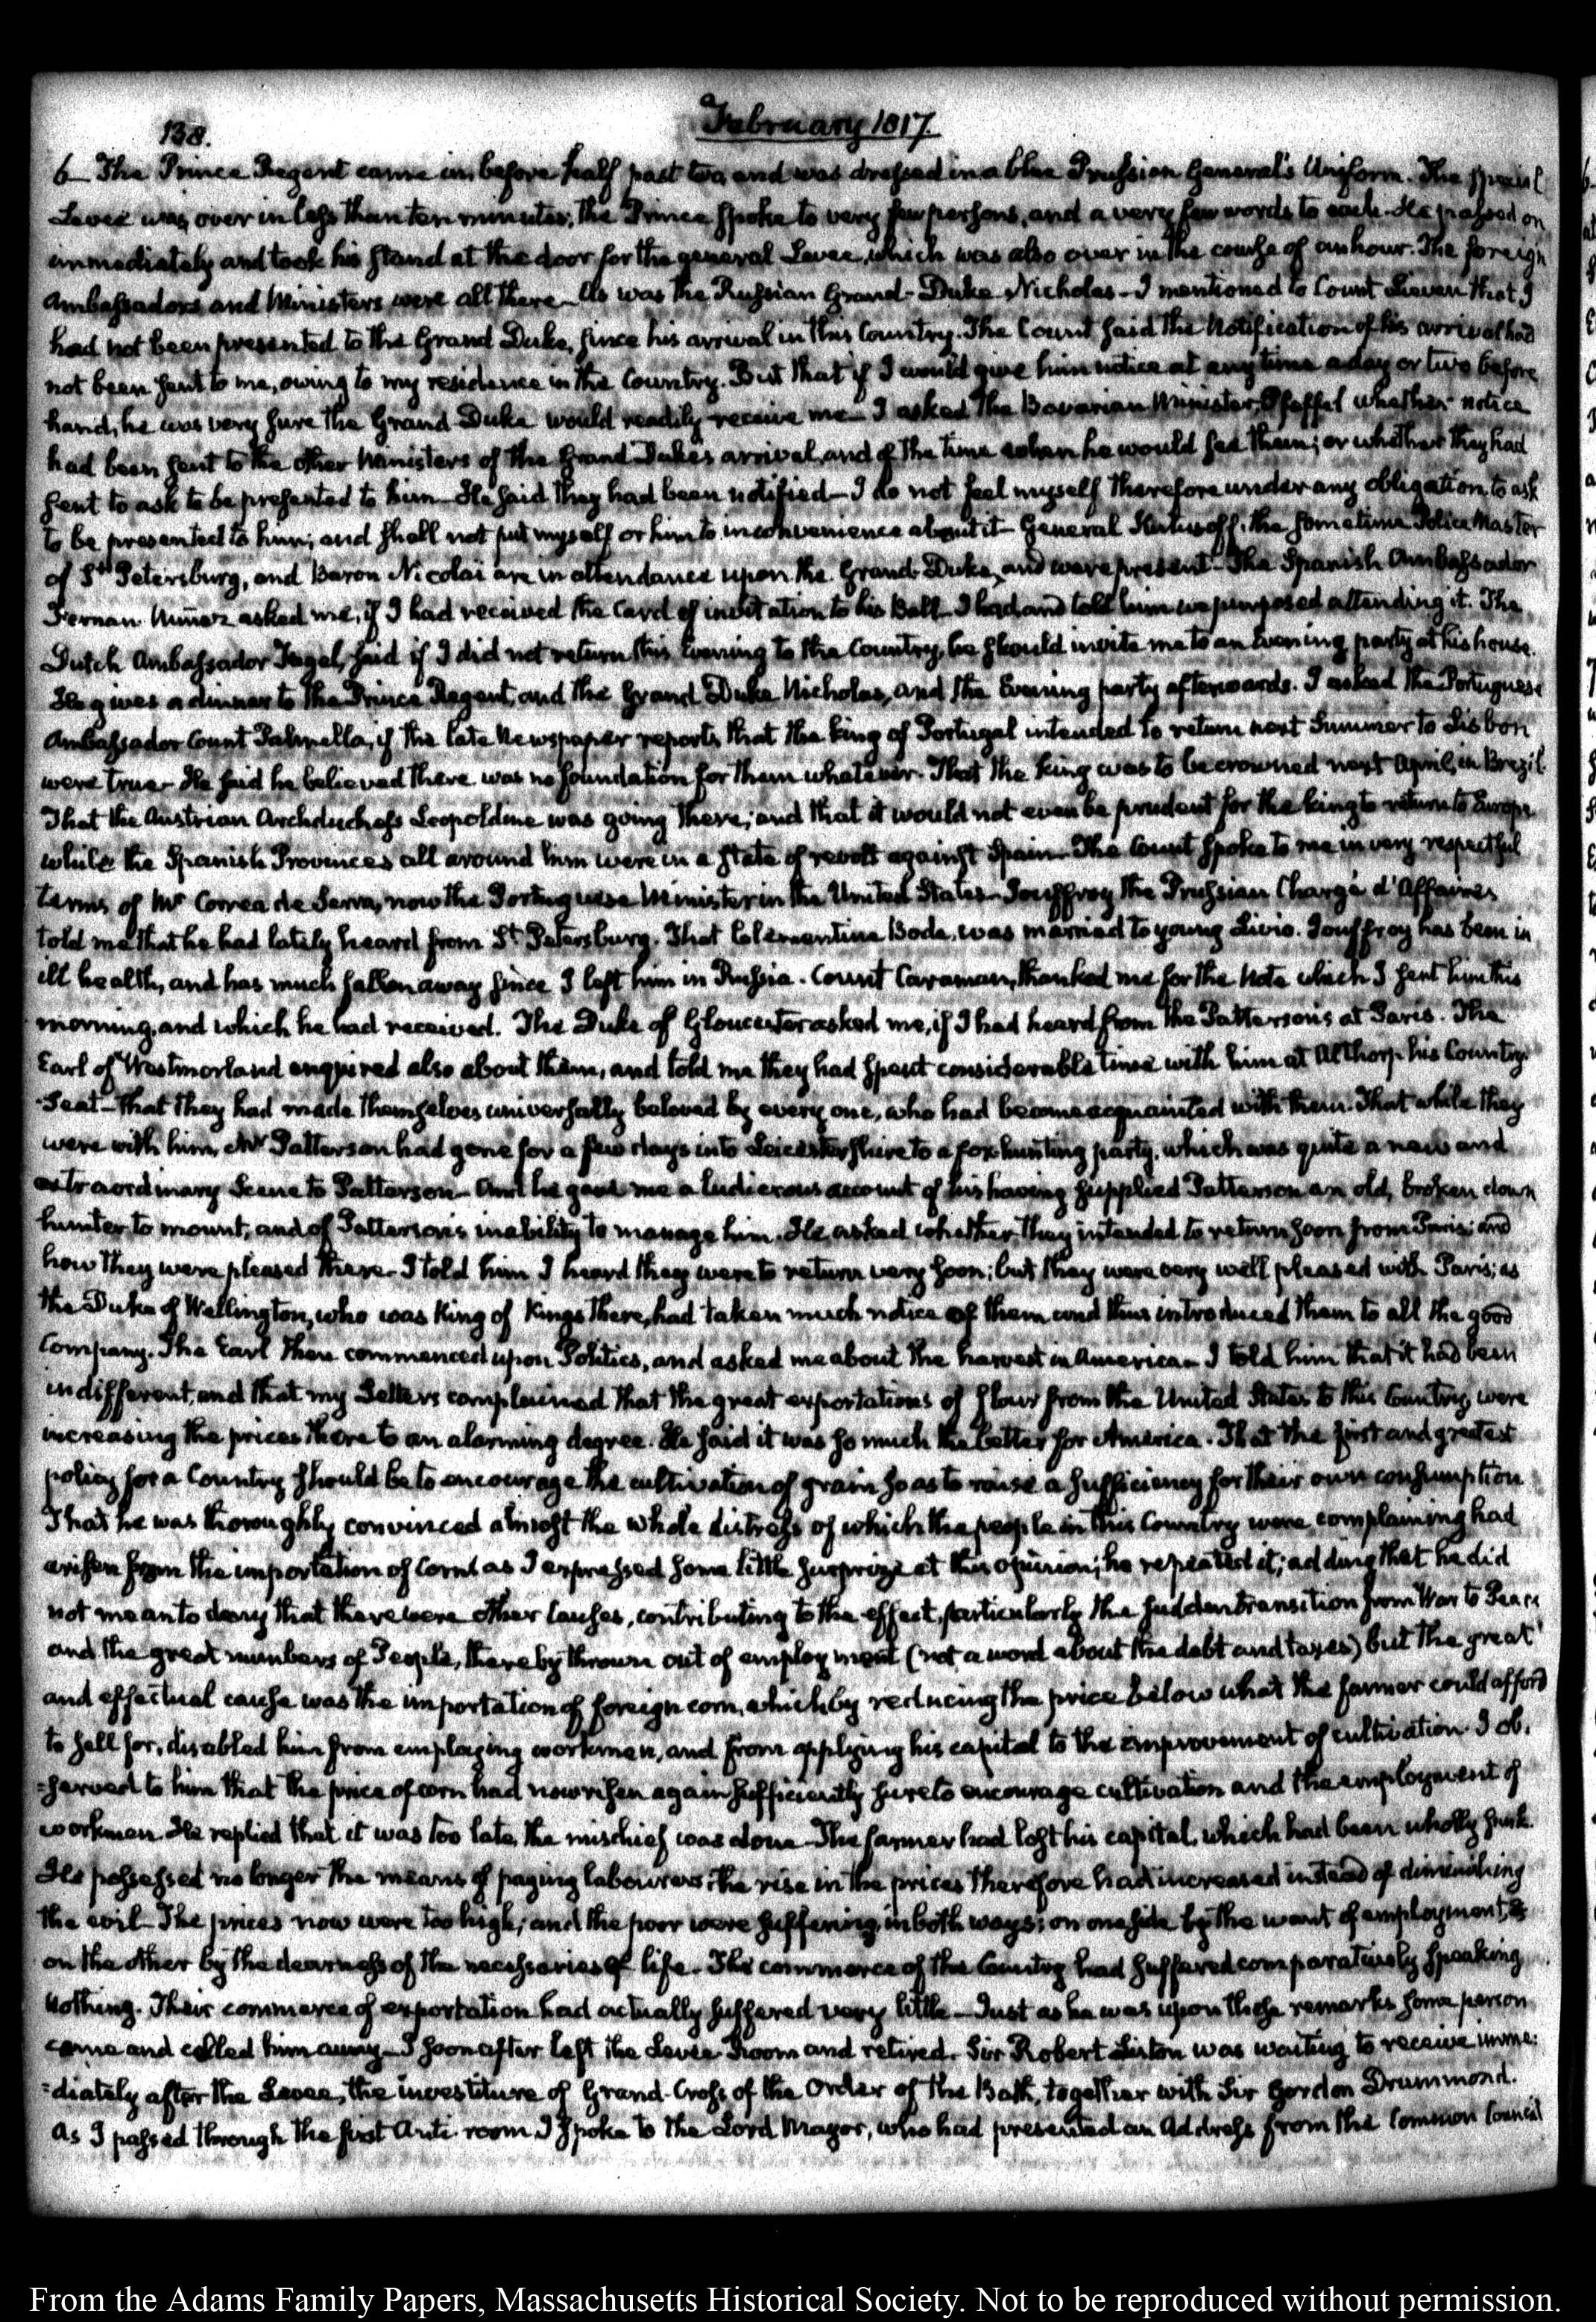 138.
February 1817.
6— The Prince Regent came in before half past two, and was dressed in a blue Prussian General's Uniform. The special
Levee was over in less than ten minutes; the Prince spoke to very few persons, and a very few words to each. He passed on
immediately and took his stand at the door for the general Levee, which was also over in the course of an hour. The foreign
Ambassadors and Ministers were all there— As was the Russian Grand-Duke Nicholas— I mentioned to Count Lieven that I
had not been presented to the Grand Duke, since his arrival in this Country. The Count said the Notification of his arrival had
not been sent to me, owing to my residence in the Country. But that if I would give him notice at any time a day or two before
hand, he was very sure the Grand Duke would readily receive me— I asked the Bavarian Minister, Pfeffel whether notice
had been sent to the other Ministers of the Grand Duke's arrival, and of the time when he would see them; or whether they had
sent to ask to be presented to him— He said they had been notified— I do not feel myself therefore under any obligation, to ask
to be presented to him; and shall not put myself or him to inconvenience about it— General Kutusoff, the sometime Police Master
of St. Petersburg, and Baron Nicolai are in attendance upon the Grand-Duke, and were present— The Spanish Ambassador
Fernan Nuñez asked me, if I had received the Card of invitation to his Ball— I had and told him we purposed attending it. The
Dutch Ambassador Fagel, said if I did not return this Evening to the Country, he should invite me to an Evening party at his house.
He gives a dinner to the Prince Regent, and the Grand Duke Nicholas, and the Evening party afterwards. I asked the Portuguese
Ambassador Count Palmella, if the late Newspaper reports that the king of Portugal intended to return next Summer to Lisbon
were true— He said he believed there was no foundation for them whatever. That the king was to be crowned next April, in Brazil.
That the Austrian Archduchess Leopoldine was going there; and that it would not even be prudent for the king to return to Europe
while the Spanish Provinces all around him were in a state of revolt against Spain— The Count spoke to me in very respectful
terms of Mr Correa de Serra, now the Portuguese Minister in the United States— Jouffroy the Prussian Chargé d'Affaires
told me that he had lately heard from St. Petersburg. That Clementina Bode, was married to young Livio. Jouffroy has been in
ill health, and has much fallen away since I left him in Russia. Count Caraman, thanked me for the Note which I sent him this
morning, and which he had received. The Duke of Gloucester asked me, if I had heard from the Patterson's at Paris. The
Earl of Westmorland enquired also about them, and told me they had spent considerable time with him at Althorp his Country
Seat— That they had made themselves universally beloved by every one, who had become acquainted with them. That while they
were with him, Mr Patterson had gone for a few days into Leicestershire to a fox hunting party, which was quite a new and
extraordinary Scene to Patterson— And he gave me a ludicrous account of his having supplied Patterson an old, broken down
hunter to mount; and of Patterson's inability to manage him. He asked whether they intended to return soon from Paris; and
how they were pleased there— I told him I heard they were to return very soon; but they were very well pleased with Paris; as
the Duke of Wellington, who was King of Kings there, had taken much notice of them, and thus introduced them to all the good
Company. The Earl then commenced upon Politics, and asked me about the harvest in America— I told him that it had been
indifferent, and that my Letters complained that the great exportations of flour from the United States to this Country, were
increasing the prices there to an alarming degree. He said it was so much the better for America. That the first and greatest
policy for a Country should be to encourage the cultivation of grain so as to raise a sufficiency for their own consumption
That he was thoroughly convinced almost the whole distress of which the people in this Country were complaining had
arisen from the importation of Corn as I expressed some little surprize at this opinion; he repeated it; adding that he did
not mean to deny that there were other causes, contributing to the effect, particularly the sudden transition from War to Peace
and the great numbers of People, thereby thrown out of employment (not a word about the debt and taxes) but the great
and effectual cause was the importation of foreign corn, which by reducing the price below what the farmer could afford
to sell for, disabled him from employing workmen, and from applying his capital to the improvement of cultivation. I ob:
:served to him that the price of corn had now risen again sufficiently sure to encourage cultivation and the employment of
workmen. He replied that it was too late, the mischief was done— The farmer had lost his capital, which had been wholly sunk.
He possessed no longer the means of paying labourers. The rise in the prices therefore had increased instead of diminishing
the evil— The prices now were too high; and the poor were suffering, in both ways; on one side by the want of employment, &
on the other by the dearness of the necessaries of life. The commerce of the Country had suffered comparatively speaking
nothing. Their commerce of exportation had actually suffered very little— Just as he was upon these remarks some person
came and called him away— I soon after left the Levee Room and retired. Sir Robert Liston was waiting to receive imme:
:diately after the Levee, the investiture of Grand-Cross of the Order of the Bath, together with Sir Gordon Drummond.
As I passed through the first Anti room I spoke to the Lord Mayor, who had presented an Address from the Common Council
From the Adams Family Papers, Massachusetts Historical Society. Not to be reproduced without permission.